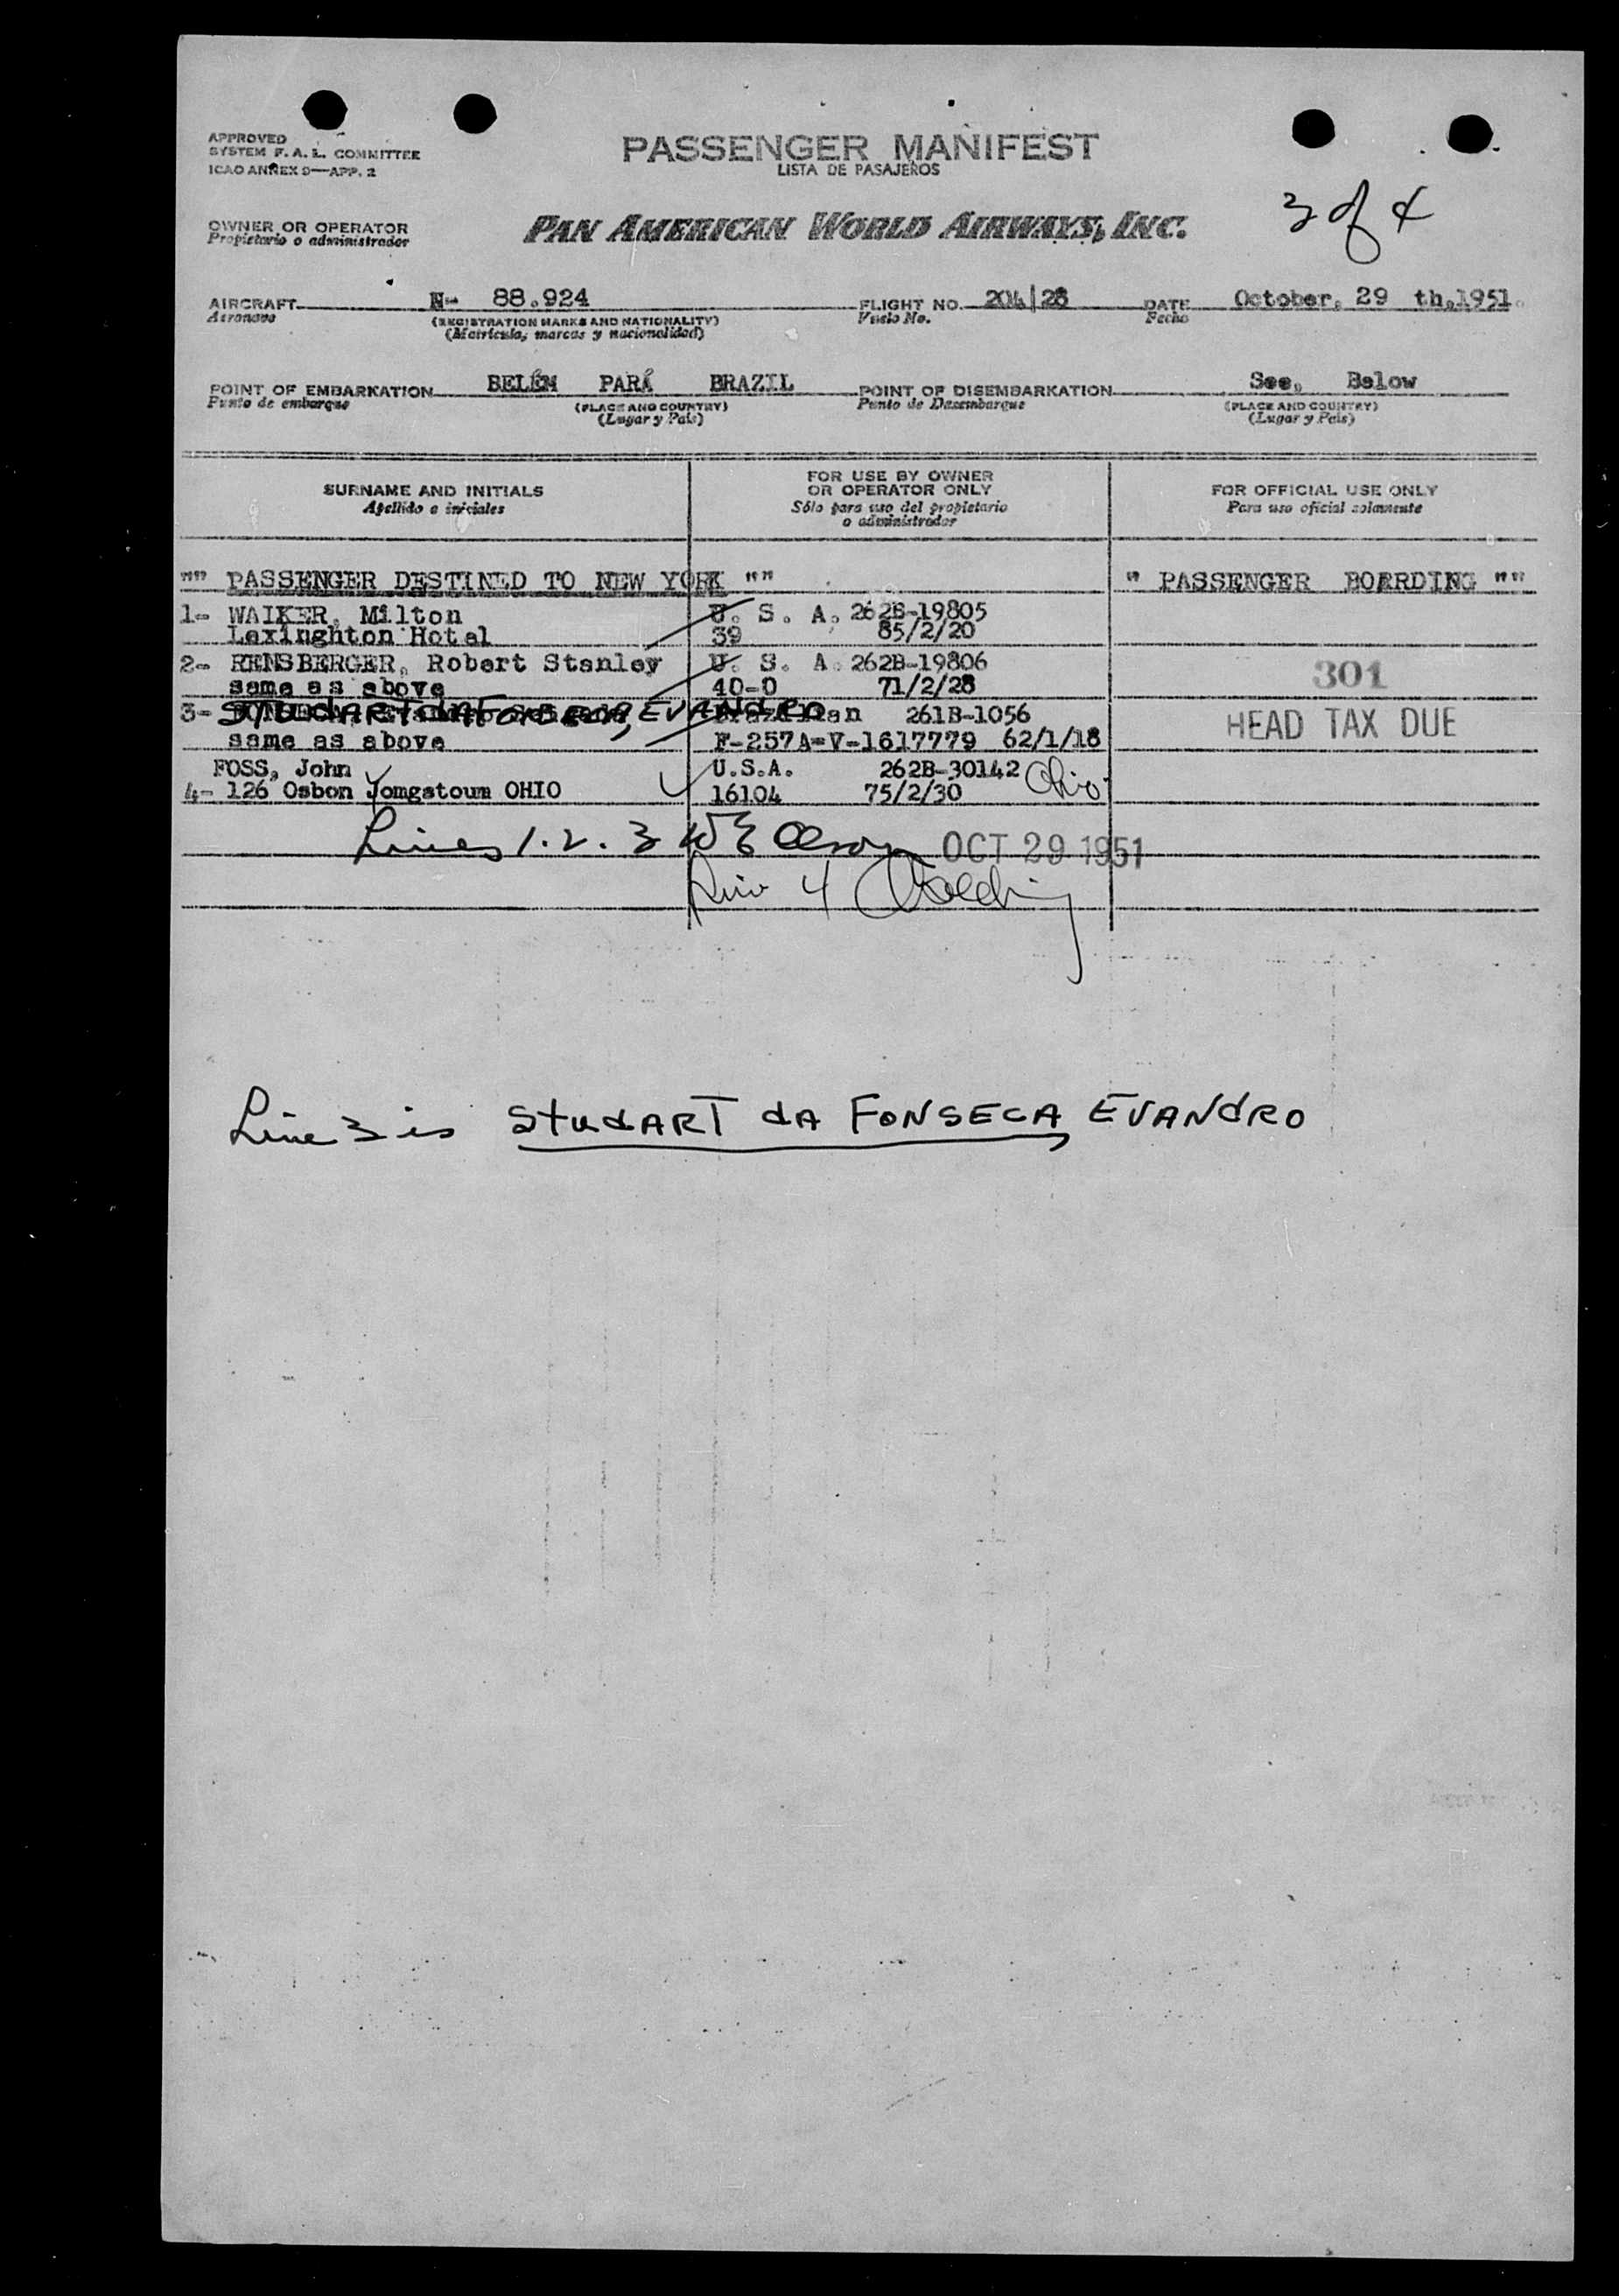 APPROVED
SYSTEM F. A. L. COMMITTEE
ICAO ANNEX 9—APP. 2
PASSENGER MANIFEST
LISTA DE PASAJEROS
3 of 4
OWNER OR OPERATOR
Propietario o administrador
PAN AMERICAN WORLD AIRWAYS, INC.
AIRCRAFT N- 88.924 FLIGHT NO. 204/28 DATE October, 29 th,1951.
Aeronave (REGISTRATION MARKS AND NATIONALITY) Vuelo No. Fecha
(Matrícula, marcas y nacionalidad)
POINT OF EMBARKATION BELÉM PARÁ BRAZIL POINT OF DISEMBARKATION See, Below
Punto de embarque (PLACE AND COUNTRY) Punto de Desembarque (PLACE AND COUNTRY)
(Lugar y País) (Lugar y País)
SURNAME AND INITIALS
Apellido e iniciales
FOR USE BY OWNER
OR OPERATOR ONLY
Sólo para uso del propietario
o administrador
FOR OFFICIAL USE ONLY
Para uso oficial solamente
"" PASSENGER DESTINED TO NEW YORK "" " PASSENGER BOERDING ""
1- WAIKER, Milton U. S. A. 262B-19805
Lexinghton Hotel 39 85/2/20
2- RENSBERGER, Robert Stanley U. S. A. 262B-19806
same as above 40-0 71/2/28
301
3- STUDART DA FONSECA, EVANDRO Brazilian 261B-1056
HEAD TAX DUE
same as above F-257A-V-1617779 62/1/18
FOSS, John U.S.A. 262B-30142 Ohio
4- 126 Osbon Yomgstoum OHIO 16104 75/2/30
Lines 1. 2. 3 W E Olson OCT 29 1951
Line 4
Line 3 is STUDART dA FONSECA, EVANdRO